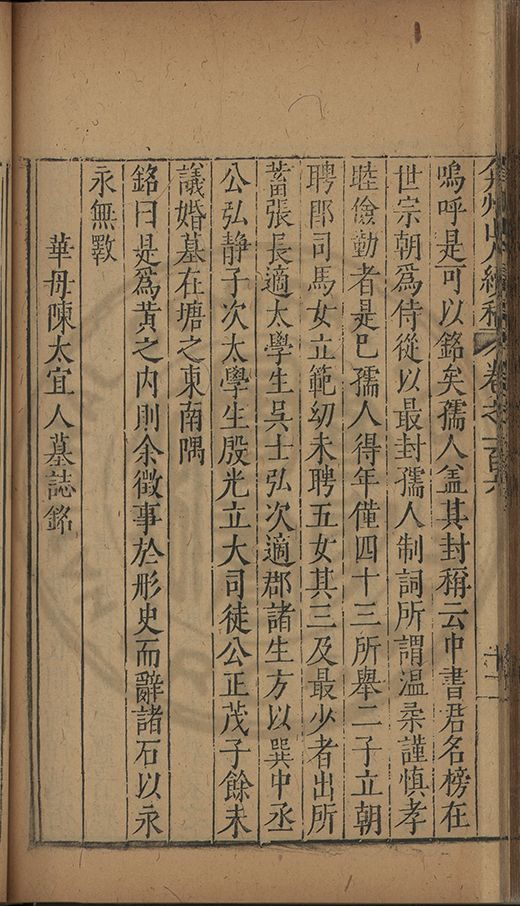 弇州山人續稿 卷之一百六 十二
嗚呼是可以銘矣孺人盖其封稱云中書君名榜在
世宗朝爲侍從以最封孺人制詞所謂温柔謹慎孝
睦儉勤者是已孺人得年僅四十三所舉二子立朝
聘郎司馬女立範幼未聘五女其三及最少者出所
蓄張長適太學生吳士弘次適郡諸生方以巽中丞
公弘静子次太學生殷光立大司徒公正茂子餘未
議婚墓在塘之東南隅
銘曰是爲黄之内則余徵事於彤史而辭諸石以永
永無斁
華母陳太宜人墓誌銘